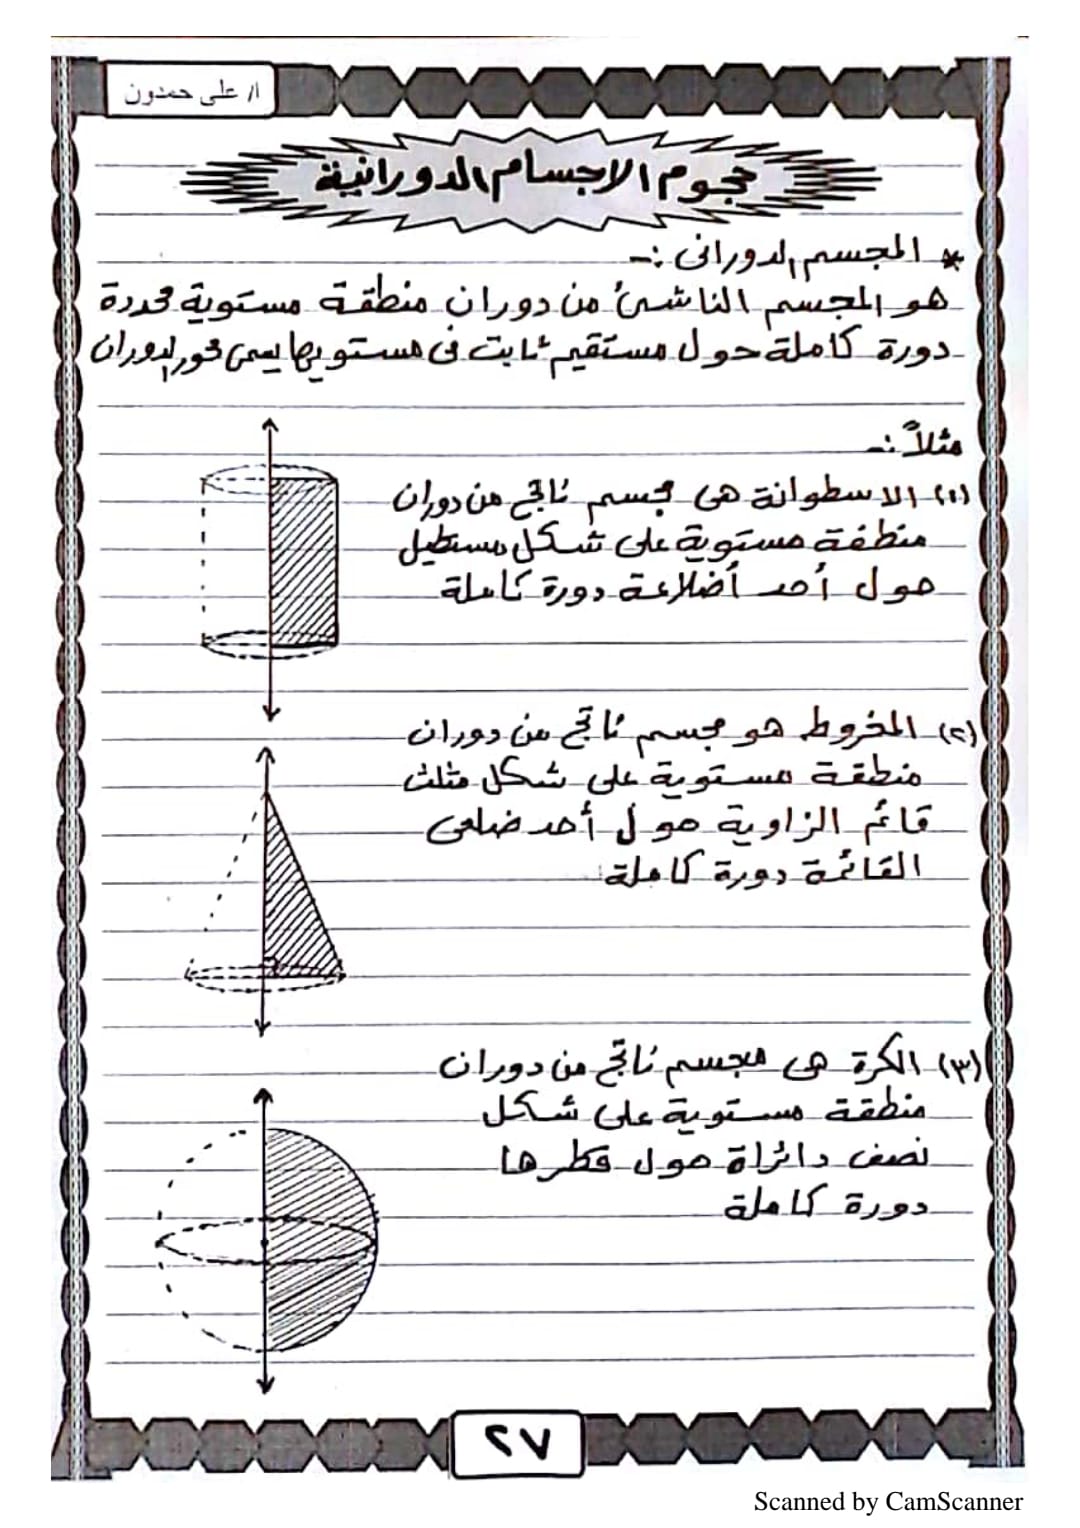 أ/ على حمدون
حجوم الاجسام الدورانية
* المجسم الدورانى :-
هو المجسم الناشئ من دوران منطقة مستوية محددة
دورة كاملة حول مستقيم ثابت فى مستويها يسمى محور الدوران
مثلاً :-
(١) الاسطوانة هى مجسم ناتج من دوران
منطقة مستوية على شكل مستطيل
حول أحد أضلاعة دورة كاملة
(٢) المخروط هو مجسم ناتج من دوران
منطقة مستوية على شكل مثلث
قائم الزاوية حول أحد ضلعى
القائمة دورة كاملة
(٣) الكرة هى مجسم ناتج من دوران
منطقة مستوية على شكل
نصف دائراة حول قطرها
دورة كاملة
٢٧
Scanned by CamScanner